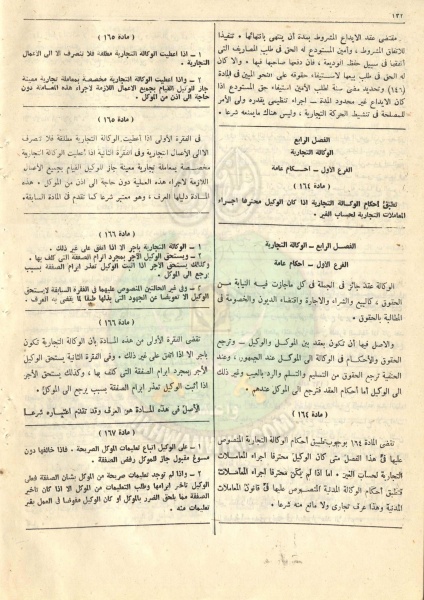 ١٣٢
مقتضى عقد الايداع المشروط بمدة أن ينتهى بانتهائها . تنفيذا
للاتفاق المشروط ، وأمين المستودع له الحق في طلب المصاريف التى
أنفقها في سبيل حفظ الوديعة ، فان دفعها صاحبها فبها . والا كان
له الحق في طلب بيعها لاستيفاء حقوقه على النحو المبين في المادة
(١٤٦) وتحديد مضى سنة لطلب الأمين استيفاء حق المستودع اذا
كان الايداع غير محدود المدة - اجراء تنظيمى يقدره ولى الأمر
للمصلحة في تنشيط الحركة التجارية ، وليس هناك مايمنعه شرعا .
الفصل الرابع
الوكالة التجارية
الفرع الاول - احكام عامة
( مادة ١٦٤ )
تطبق أحكام الوكالة التجارية اذا كان الوكيل محترفا اجراء
المعاملات التجارية لحساب الغير .
الفصل الرابع - الوكالة التجارية
الفرع الأول - أحكام عامة
الوكالة عقد جائز في الجملة في كل ماجازت فيه النيابة من
الحقوق ، كالبيع والشراء والاجارة واقتضاء الديون والخصومة في
المطالبة بالحقوق .
والأصل فيها أن تكون بعقد بين الموكل والوكيل - وترجع
الحقوق والأحكام في الوكالة الى الموكل عند الجمهور ، وعند
الحنفية ترجع الحقوق من التسليم والتسلم والرد بالعيب وغير ذلك
الى الوكيل أما أحكام العقد فترجع الى الموكل عندهم .
( مادة ١٦٤ )
تقضى المادة ١٦٤ بوجوب تطبيق أحكام الوكالة التجارية المنصوص
عليها في هذا الفصل متى كان الوكيل محترفا اجراء المعاملات
التجارية لحساب الغير . أما اذا لم يكن محترفا اجراء المعاملات
فتطبق أحكام الوكالة المدنية المنصوص عليها في قانون المعاملات
المدنية وهذا عرف تجارى ولا مانع منه شرعا .
( مادة ١٦٥ )
١ - اذا أعطيت الوكالة التجارية مطلقة فلا تنصرف الا الى الاعمال
التجارية .
٢ - واذا أعطيت الوكالة التجارية مخصصة بمعاملة تجارية معينة
جاز للوكيل القيام بجميع الاعمال اللازمة لاجراء هذه المعاملة دون
حاجة الى اذن من الموكل .
( مادة ١٦٥ )
في الفقرة الأولى اذا أعطيت الوكالة التجارية مطلقة فلا تنصرف
الا الى الأعمال التجارية وفى الفقرة الثانية اذا أعطيت الوكالة التجارية
مخصصة بمعاملة تجارية معينة جاز للوكيل القيام بجميع الاعمال
اللازمة لاجراء هذه العملية دون حاجة الى اذن من الموكل . هذه
المادة دليلها العرف ، وهو معتبر شرعا كما تقدم في المادة السابقة.
( مادة ١٦٦ )
١ - الوكالة التجارية بأجر الا اذا اتفق على غير ذلك .
٢ - ويستحق الوكيل الأجر بمجرد ابرام الصفقة التى كلف بها ،
وكذلك يستحق الأجر اذا أثبت الوكيل تعذر ابرام الصفقة بسبب
يرجع الى الموكل .
٣ - وفى غير الحالتين المنصوص عليهما في الفقرة السابقة لايستحق
الوكيل الا تعويضا عن الجهود التى بذلها طبقا لما يقضى به العرف .
( مادة ١٦٦ )
تقضى الفقرة الأولى من هذه المادة بأن الوكالة التجارية تكون
بأجر الا اذا اتفق على غير ذلك . وفى الفقرة الثانية يستحق الوكيل
الأجر بمجرد ابرام الصفقة التى كلف بها ، وكذلك يستحق الأجر
اذا أثبت الوكيل تعذر ابرام الصفقة بسبب يرجع الى الموكل .
الأصل في هذه المادة هو العرف وقد تقدم اعتباره شرعا
( مادة ١٦٧ )
١ - على الوكيل اتباع تعليمات الموكل الصريحة . فاذا خالفها دون
مسوغ مقبول جاز للموكل رفض الصفقة .
٢ - واذا لم توجد تعليمات صريحة من الموكل بشأن الصفقة فعلى
الوكيل تأخير ابرامها وطلب التعليمات من الموكل الا اذا كان تأخير
الصفقة مما يلحق الضرر بالموكل أو كان الوكيل مفوضا في العمل بغير
تعليمات منه .